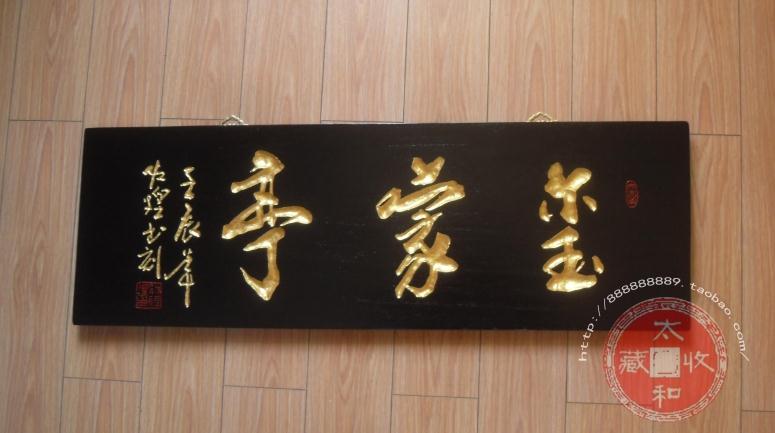 玺蒙亭
壬辰年
佐煌书刻
http://888888889.taobao.com/
太和收藏